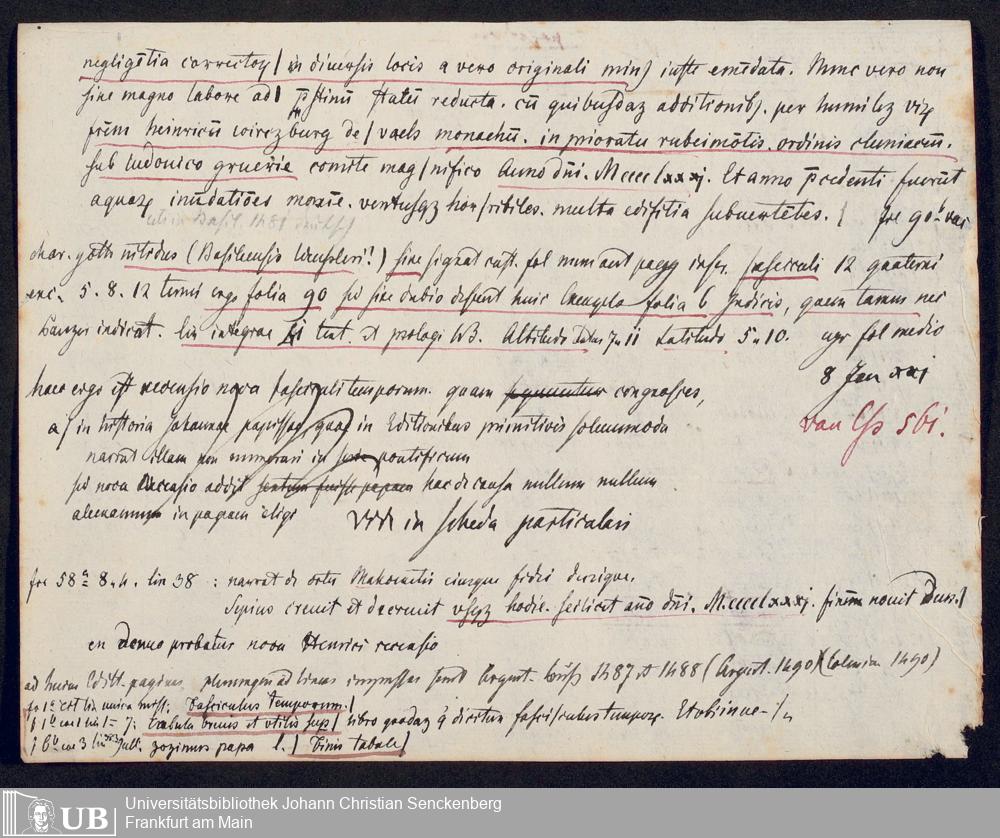 negligētia correctoꝝ / in diuersis locis a vero originali minꝰ iuste emēdata. Nunc vero non
sine magno labore ad / p̄stinū statū reducta. cū quibusdaꝫ additionibꝫ. per humilez virꝫ
frēm heinricū wirczburg de / vach monachū. in prioratu rubeimōtis. ordinis cluniaceñ.
sub ludouico gruerie comite mag / nifico Anno dñi. Mcccclxxxj. Et anno p̄cedenti fuerūt
aquaꝝ inūdatiōes maxīe. ventusqꝫ horribiles. multa edifitia subuertētes. fol 90 b vac
Basil. 1481
char. goth nitidus (Basileensis Wensleri?!) sine signat cust. fol num aut pagg inscr. fasciculi 12 quaterni
exc. 5. 8. 12 terni ergo folia 90 sed sine dubio desunt huic Exemplo folia 6 Indicis, quem tamen nec
Panzer indicat. lin integrae text. et prologi Altitudo 7 11 Latitudo 5 10. apr fol medio
8 Jan xxi
haec ergo est recensio nova fasciculi temporum. quam sequuntur
van Ess 561.
a) in historia Johannae papissae, quae in Editionibus primitivis solummodo
narrat illam non numerari in pontificum
sed nova Recensio addit hac de causa nullum nullum
alemannum in papam eligi Vide in scheda particulari
fol 58 a lin 38 : narrat de ortu Mahometis eiusque fidei
Sepius creuit et decreuit vsqꝫ hodie. scilicet año dñi. M.cccclxxxj. finem nouit Deus. /
en denuo probatur nova Henrici recensio
ad huius Edit. paginas plerumque ad lineas impressae sunt Argent. 1487 et 1488 (Argent. 1490) (Coloniae 1490)
fol 1 a est lin unica miss: Fasciculus temporum. /
f 1 b col 1 lin 1 = 7: tabula breuis et vtilis suꝑ / libro quodaꝫ q̇ dicitur fasciculus temporꝫ. Et vbi inue- /
f 6 b col 3 lin ult. zozimus papa l. / Finis tabule /
Universitätsbibliothek Johann Christian Senckenberg
Frankfurt am Main
UB